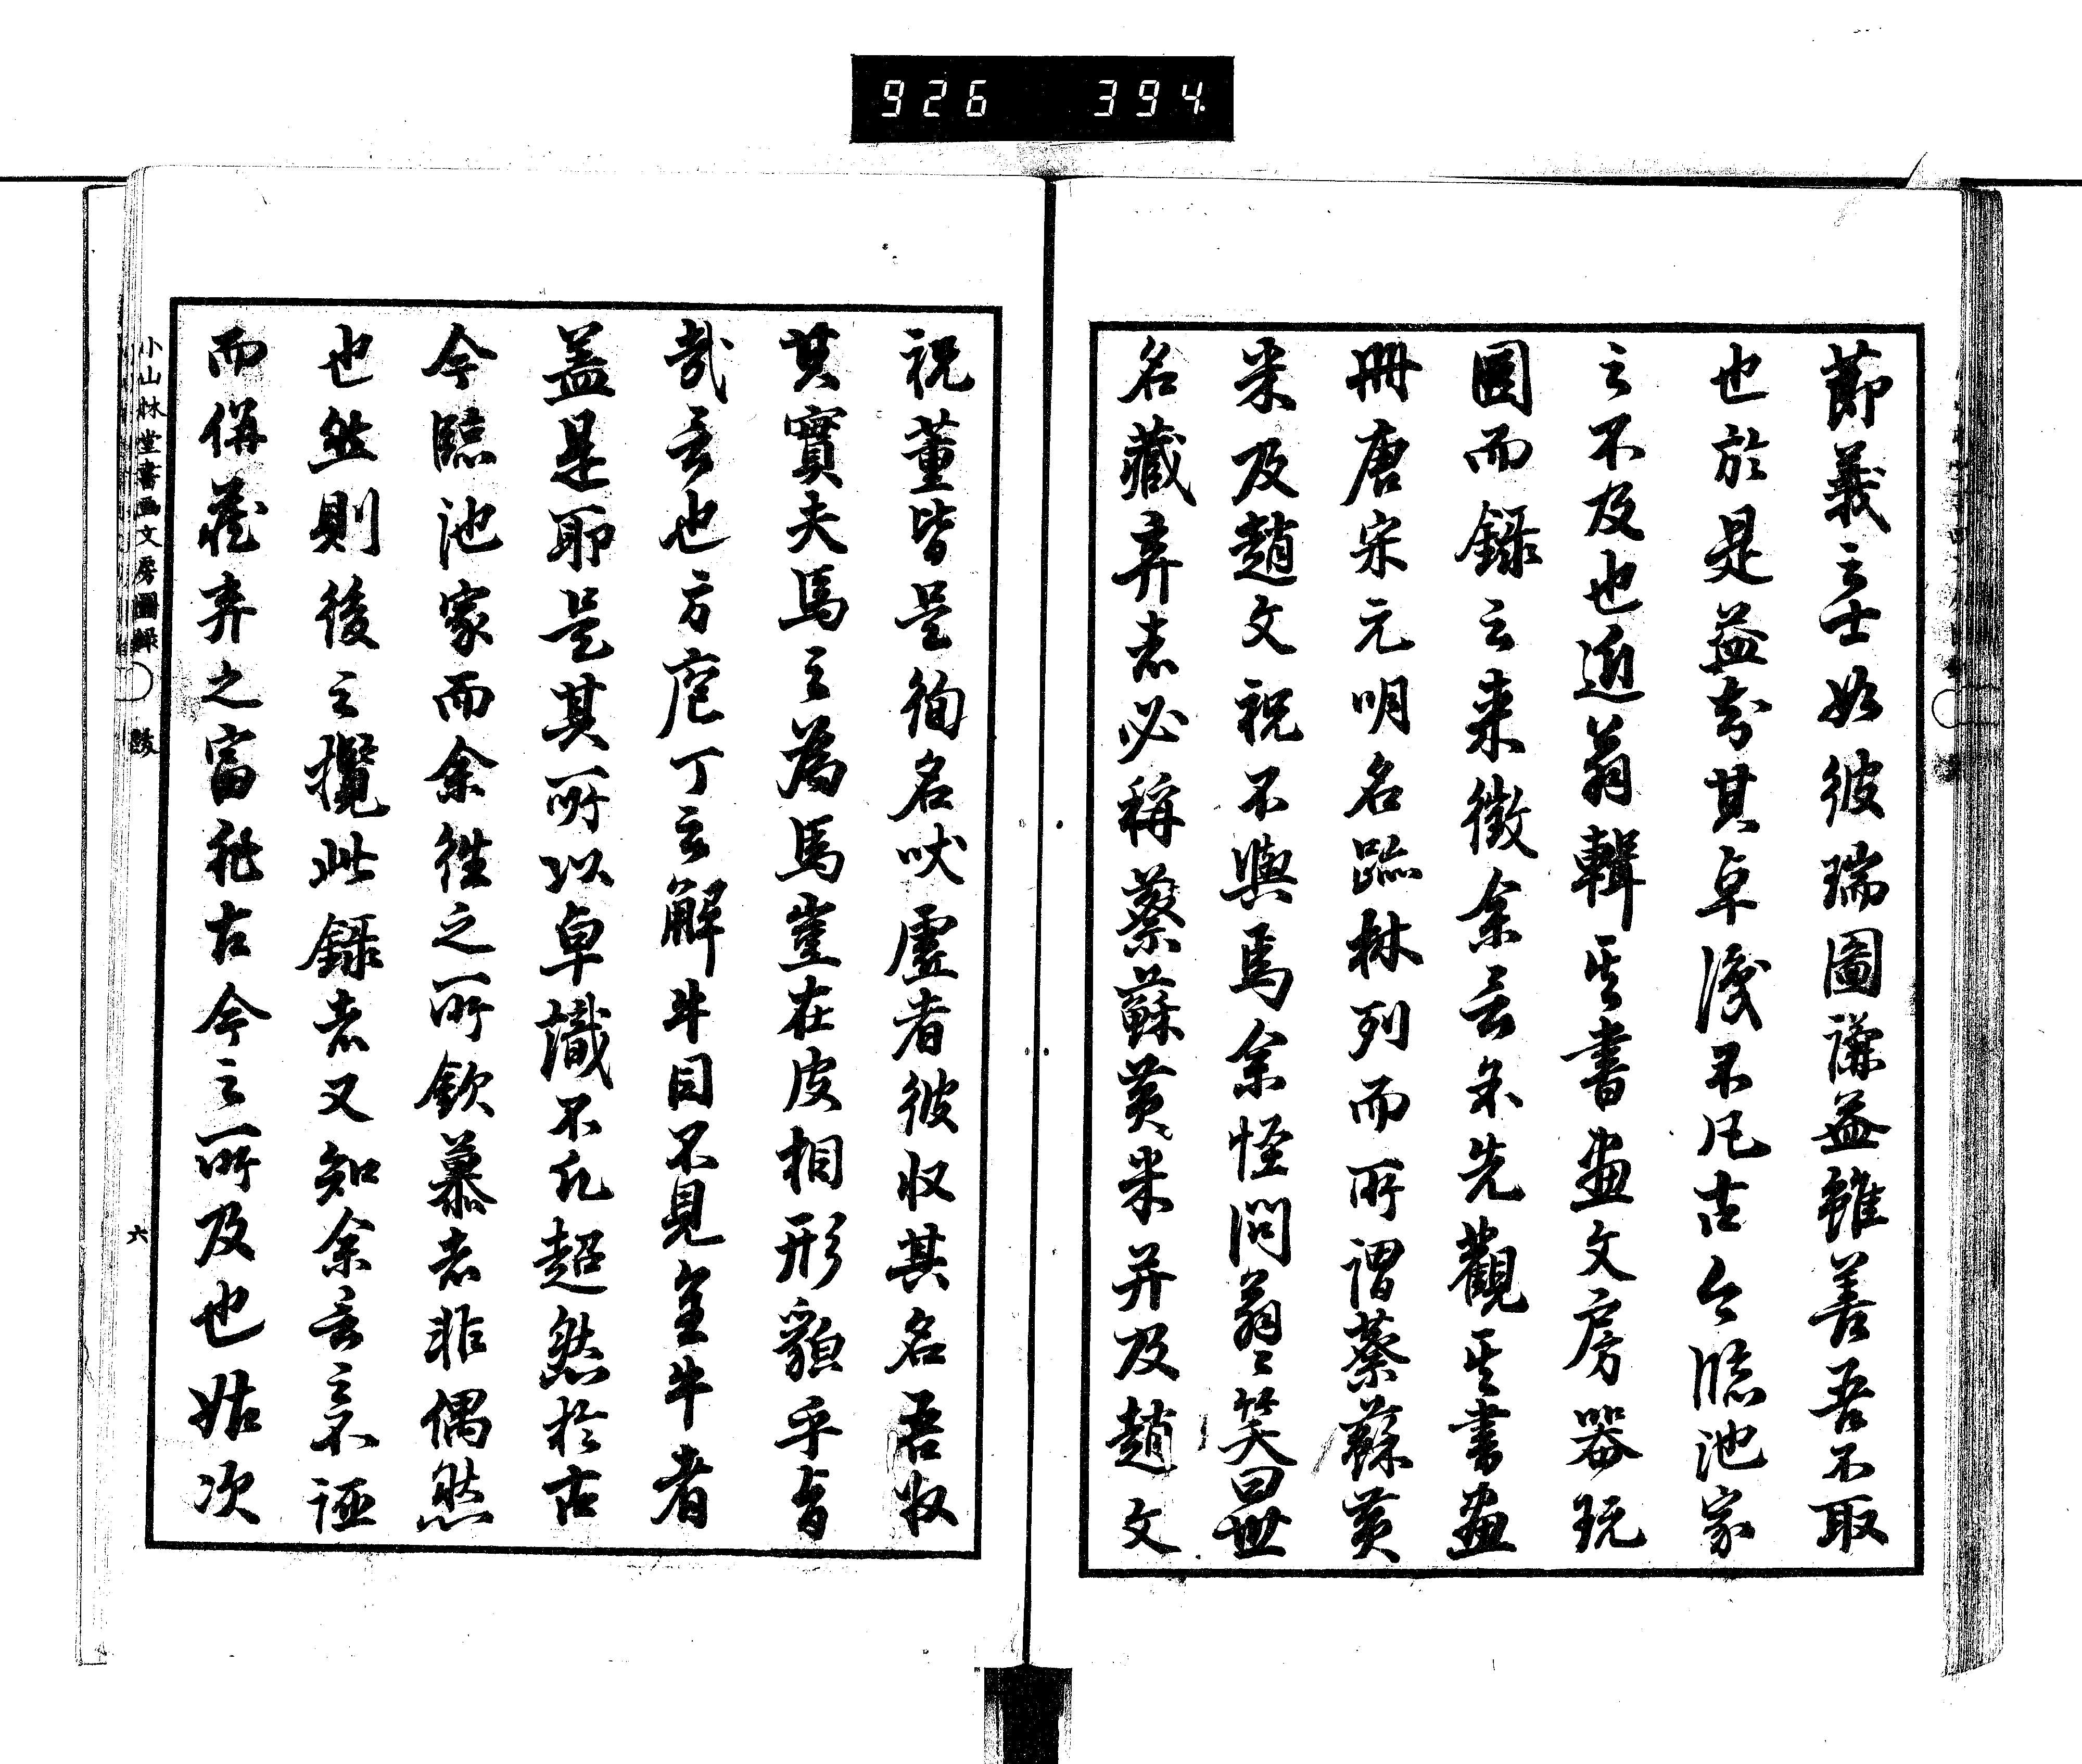 926 394
節義之士如彼瑞圖謙益雖善吾不取
也於是益台其卓識不凡古今臨池家
之不及也近翁輯其書畫文房器玩
圖而錄之來徵余言余先觀其書畫
冊唐宋元明名跡林列而所謂蔡蘇黃
米及趙文祝不與焉余怪問翁翁笑曰世
名藏弆者必稱蔡蘇黃米并及趙文
祝董皆是徇名吠虛者彼收其名吾收
其實夫馬之為馬豈在皮相形貌乎旨
哉言也方庖丁之解牛目不見全牛者
蓋是耶是其所以卓識不凡超然於古
今臨池家而余往之所欽慕者非偶然
也然則後之攬此錄者又知余言之不誣
而併藏弆之富非古今之所及也姑次
小山林堂書畫文房圖錄 跋 六